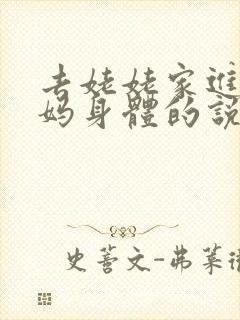 去姥姥家進
妈身體的說
史蒈文-弗萊微